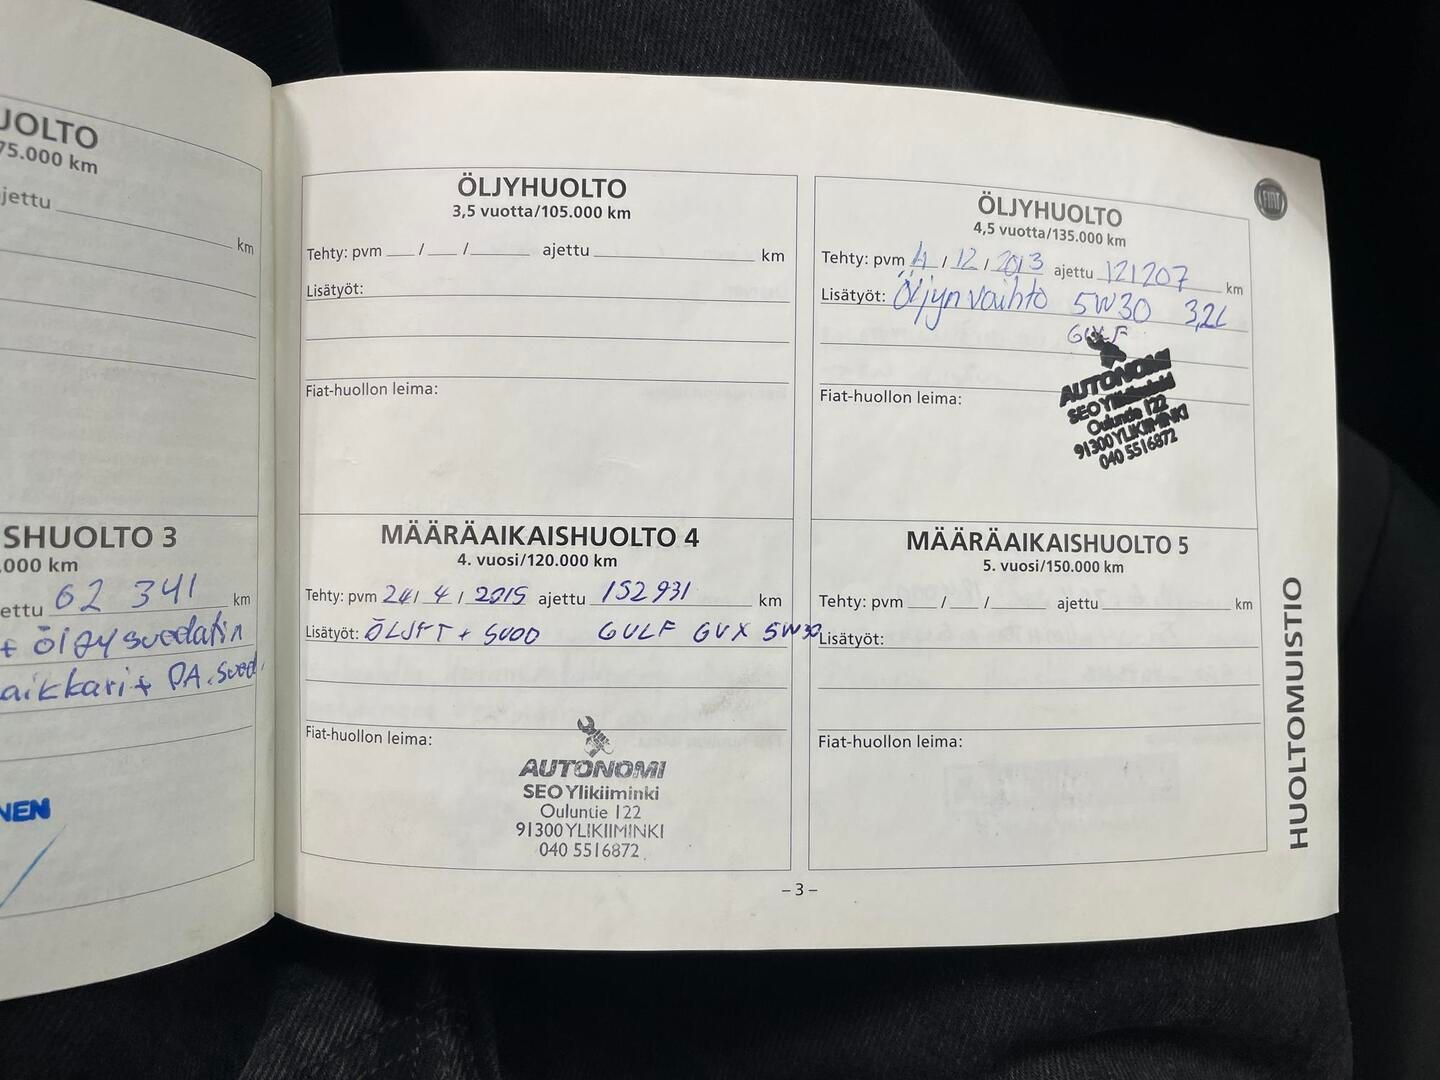 UOLTO
75.000 km
ajettu km
SHUOLTO 3
.000 km
ettu 62 341 km
+ öljysuodatin
aikkari + PA.suod.
NEN
ÖLJYHUOLTO
3,5 vuotta/105.000 km
Tehty: pvm / / ajettu km
Lisätyöt:
Fiat-huollon leima:
MÄÄRÄAIKAISHUOLTO 4
4. vuosi/120.000 km
Tehty: pvm 24/ 4 / 2015 ajettu 152931 km
Lisätyöt: ÖLJYT + SUOD GULF GVX 5W30
Fiat-huollon leima:
AUTONOMI
SEO Ylikiiminki
Ouluntie 122
91300 YLIKIIMINKI
040 5516872
ÖLJYHUOLTO
4,5 vuotta/135.000 km
Tehty: pvm 4 / 12 / 2013 ajettu 121207 km
Lisätyöt: Öljynvaihto 5W30 3,2L
GULF
Fiat-huollon leima:
AUTONOMI
SEO Ylikiiminki
Ouluntie 122
91300 YLIKIIMINKI
040 5516872
MÄÄRÄAIKAISHUOLTO 5
5. vuosi/150.000 km
Tehty: pvm / / ajettu km
Lisätyöt:
Fiat-huollon leima:
FIAT
HUOLTOMUISTIO
– 3 –